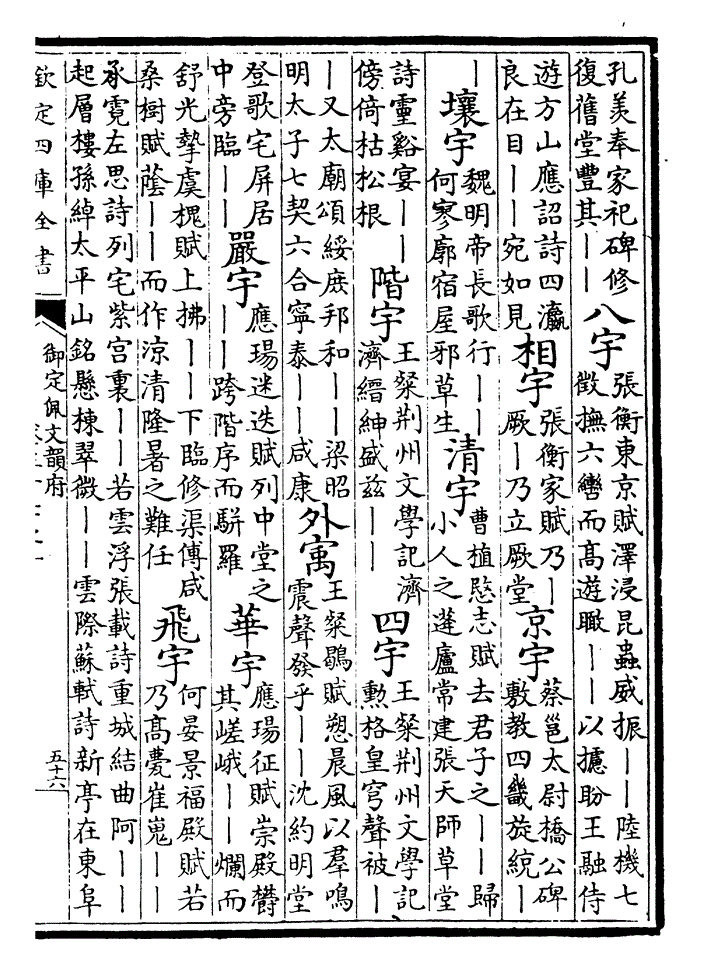 孔羡奉家祀碑修
復舊堂豐其｜｜
八宇
張衡東京賦澤浸昆蟲威振｜｜陸機七
徵撫六轡而高遊瞰｜｜以攄盼王融侍
遊方山應詔詩四瀛
良在目｜｜宛如見
相宇
張衡家賦乃｜
厥｜乃立厥堂
京宇
蔡邕太尉橋公碑
敷教四畿旋統｜
｜
壤宇
魏明帝長歌行｜｜
何寥廓宿屋邪草生
清宇
曹植愍志賦去君子之｜｜歸
小人之蓬廬常建張天師草堂
詩靈谿宴｜｜
傍倚枯松根
階宇
王粲荆州文學記濟
濟縉紳盛兹｜｜
四宇
王粲荆州文學記
勲格皇穹聲被｜
｜又太廟頌綏庶邦和｜｜梁昭
明太子七契六合寧泰｜｜咸康
外寓
王粲鶡賦愬晨風以羣鳴
震聲發乎｜｜沈約明堂
登歌宅屏居
中旁臨｜｜
嚴宇
應瑒迷迭賦列中堂之
｜｜跨階序而駢羅
華宇
應瑒征賦崇殿欝
其嵯峨｜｜爛而
舒光摯虞槐賦上拂｜｜下臨修渠傅咸
桑樹賦蔭｜｜而作涼清隆暑之難任
飛宇
何晏景福殿賦若
乃高甍崔嵬｜｜
承霓左思詩列宅紫宫裏｜｜若雲浮張載詩重城結曲阿｜｜
起層樓孫綽太平山銘懸棟翠微｜｜雲際蘇軾詩新亭在東阜
欽定四庫全書
御定佩文韻府
五十六